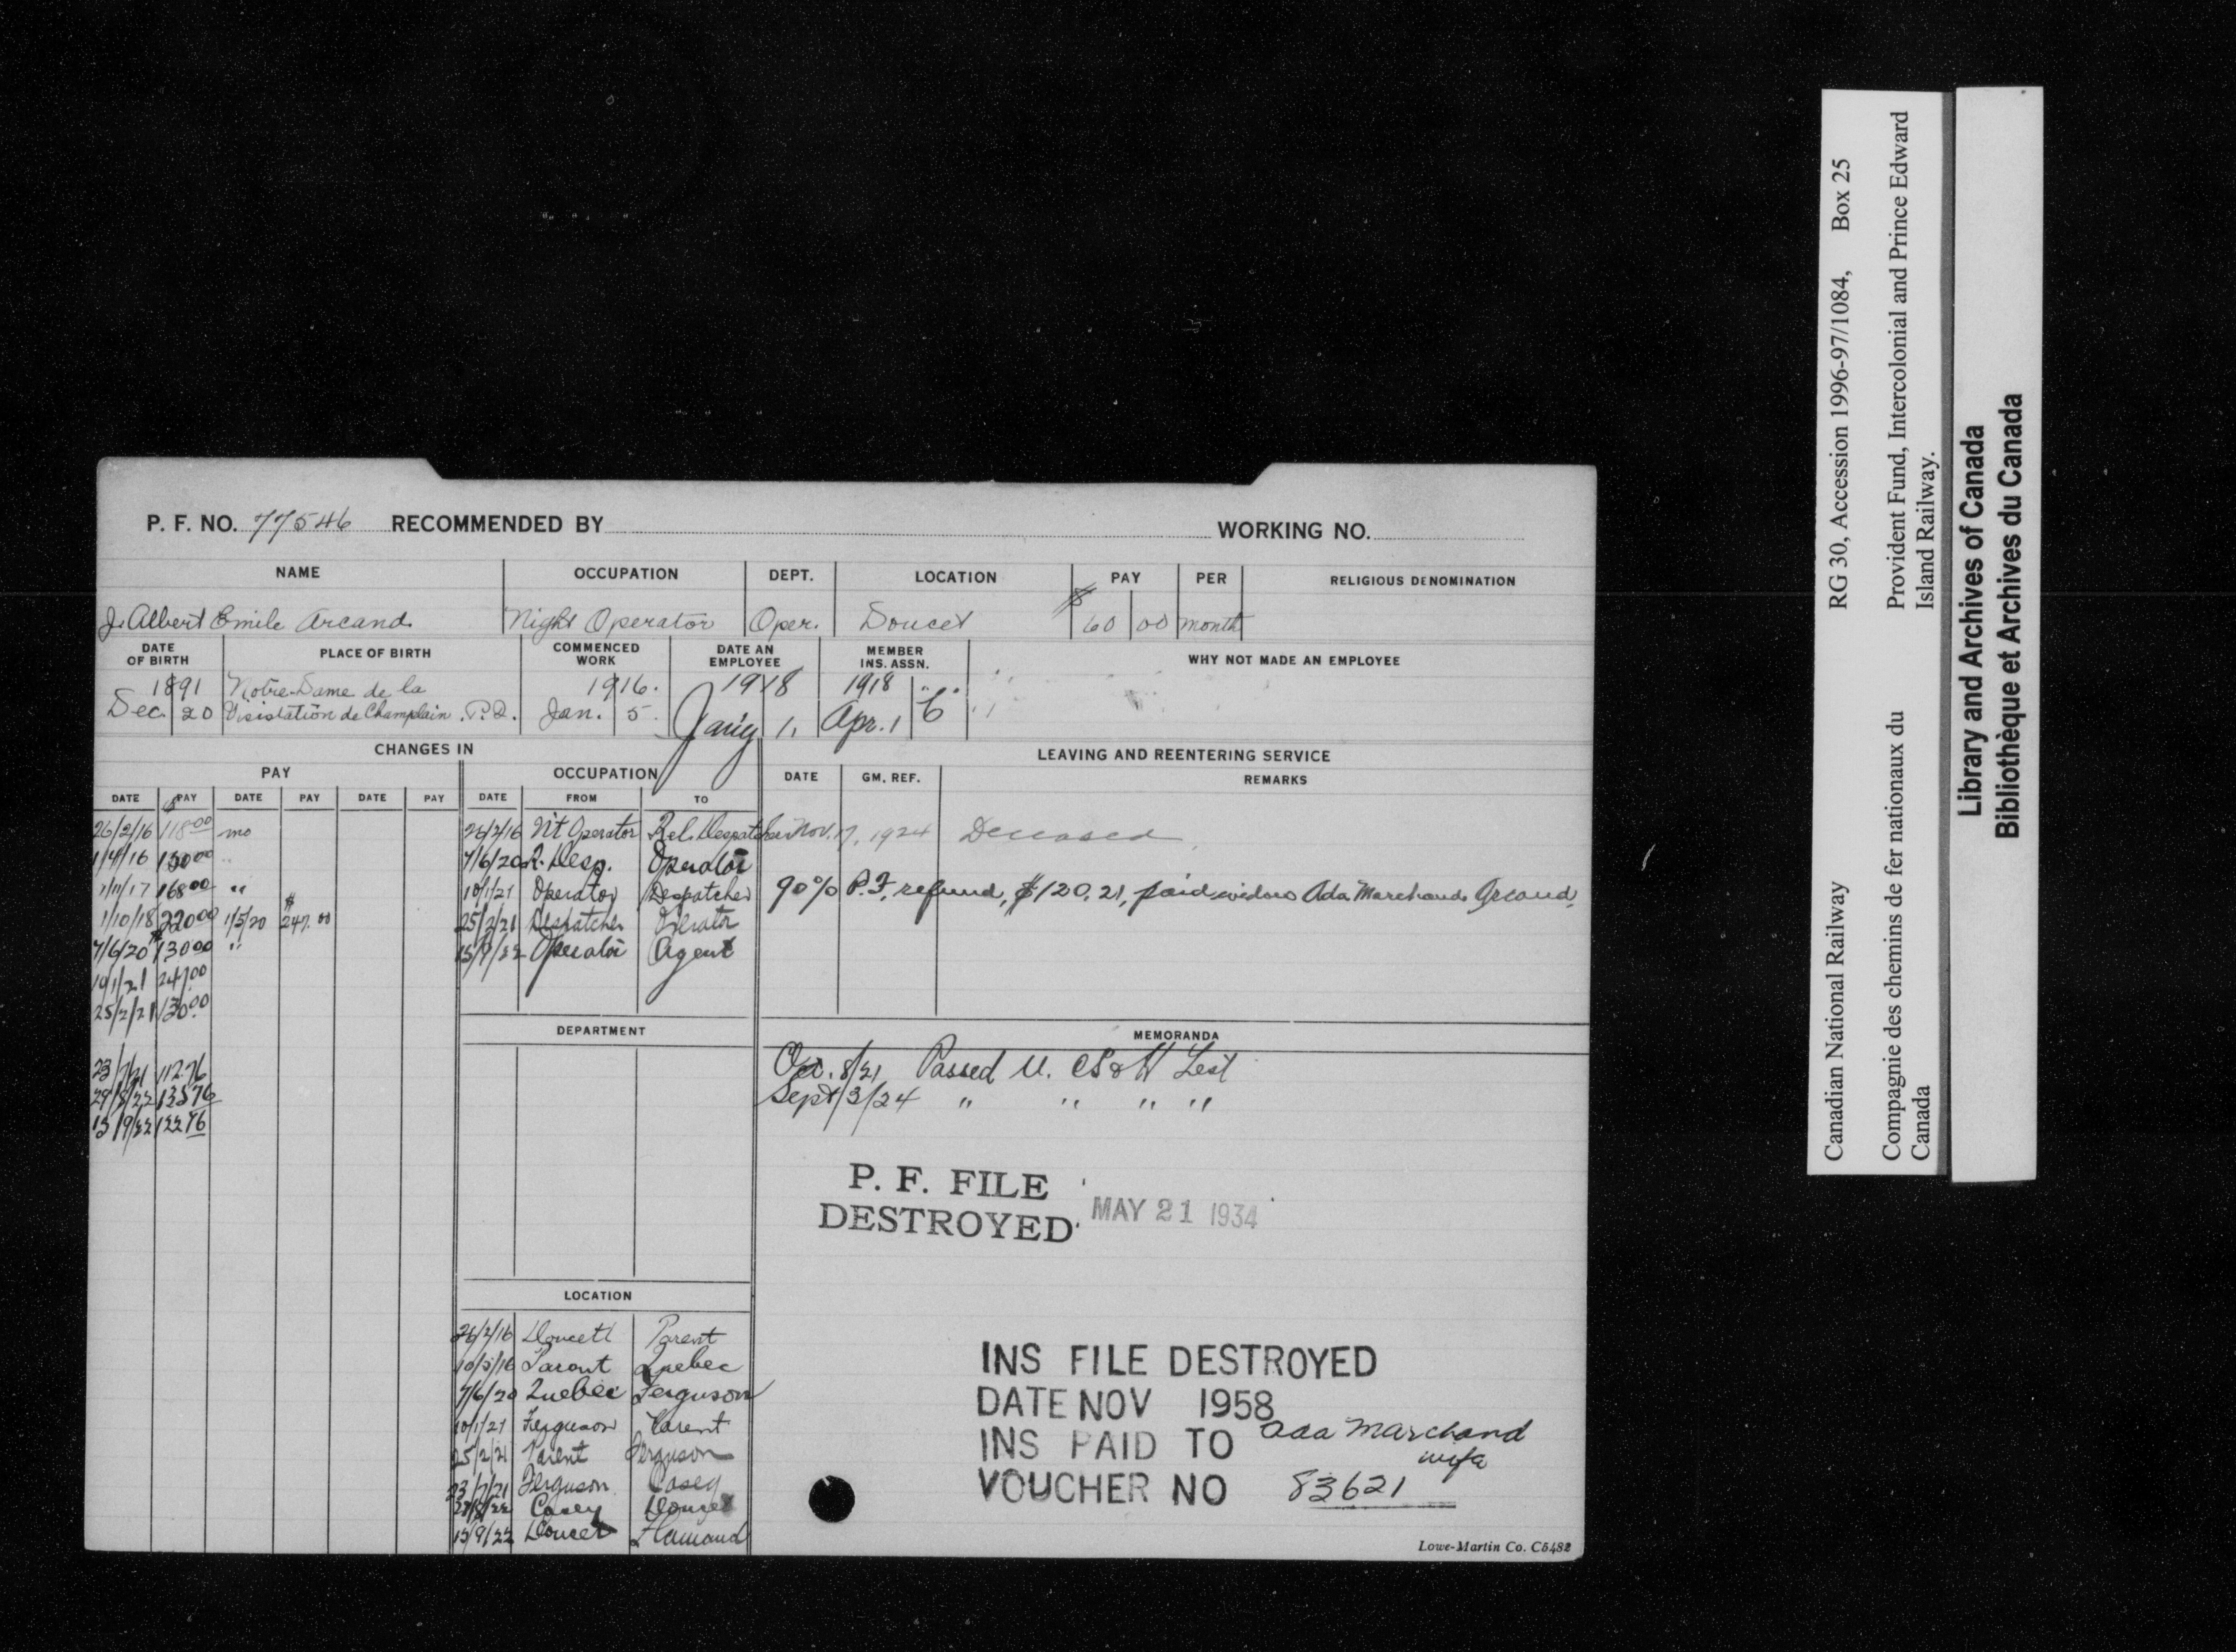 P. F. NO. 77546 RECOMMENDED BY WORKING NO.
NAME OCCUPATION DEPT. LOCATION PAY PER RELIGIOUS DENOMINATION
J. Albert Emile Arcand Night Operator Oper. Doucet $60 00 month
DATE OF BIRTH PLACE OF BIRTH COMMENCED WORK DATE AN EMPLOYEE MEMBER INS. ASSN. WHY NOT MADE AN EMPLOYEE
1891 Notre-Dame de la 1916. 1918 1918
Dec. 20 Visistation de Champlain. P.Q. Jan. 5. 1. Apr. 1 C
CHANGES IN
PAY
DATE PAY DATE PAY DATE PAY
26/2/16 $118 00 mo
1/4/16 130 00 "
1/11/17 168 00 "
1/10/18 220 00 1/5/20 $247.00
7/6/20 $130 00 "
10/1/21 247 00
25/2/21 130.00
23/7/21 112.76
29/8/22 135 76
13/9/22 122 76
OCCUPATION
DATE FROM TO
26/2/16 N't Operator Rel. Despatcher
7/6/20 R. Desp. Operator
10/1/21 Operator Despatcher
25/2/21 Despatcher Operator
15/9/22 Operator Agent
DEPARTMENT
LOCATION
26/2/16 Doucett Parent
10/5/16 Parent Quebec
7/6/20 Quebec Ferguson
10/1/21 Ferguson Parent
25/2/21 Parent Ferguson
23/7/21 Ferguson Casey
29/8/22 Casey Doucet
13/9/22 Doucet Hamaud
LEAVING AND REENTERING SERVICE
DATE GM. REF. REMARKS
Nov. 17, 1924 Deceased
90% P.F. refund, $120.21, paid widow Ada Marchand Arcand.
MEMORANDA
8/21 Passed U. C S & H Test
Sept/3/24 " " " "
P. F. FILE
DESTROYED MAY 21 1934
INS FILE DESTROYED
DATE NOV 1958
INS PAID TO Ada Marchand
wife
VOUCHER NO 83621
Lowe-Martin Co. C5482
Canadian National Railway RG 30, Accession 1996-97/1084, Box 25
Compagnie des chemins de fer nationaux du Provident Fund, Intercolonial and Prince Edward
Canada Island Railway.
Library and Archives of Canada
Bibliothèque et Archives du Canada